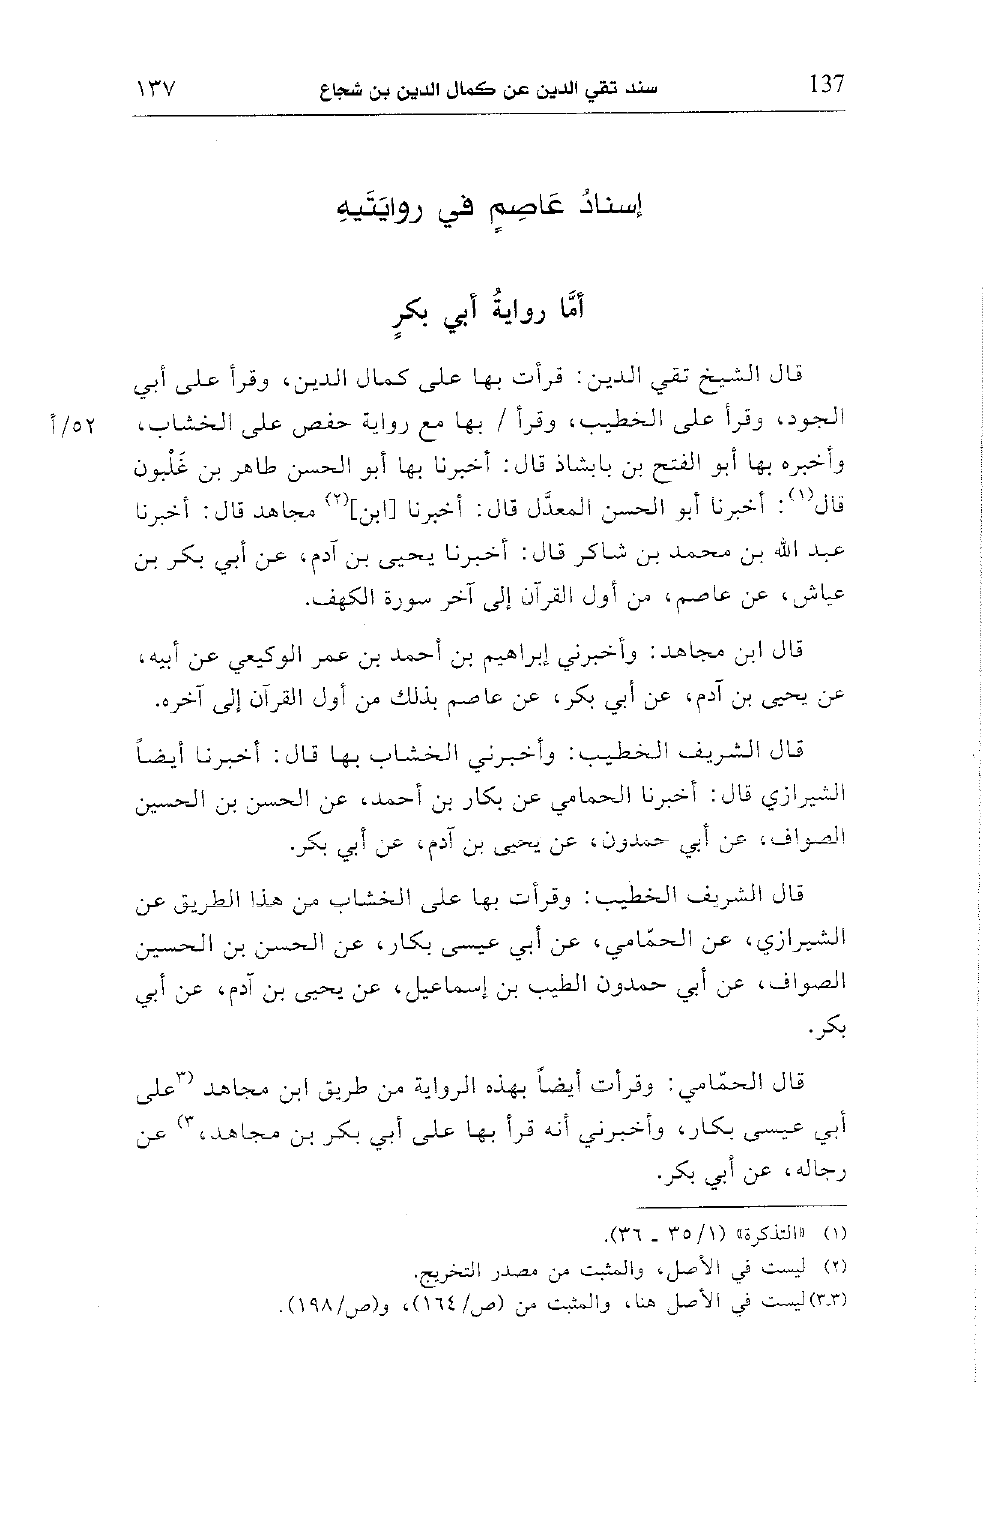 137 سند تقي الدين عن كمال الدين بن شجاع ١٣٧
إسنادُ عَاصِمٍ في روايَتَيهِ
أمَّا روايةُ أبي بكرٍ
قال الشيخ تقي الدين: قرأت بها على كمال الدين، وقرأ على أبي
الجود، وقرأ على الخطيب، وقرأ / بها مع رواية حفص على الخشاب، ٥٢/أ
وأخبره بها أبو الفتح بن بابشاذ قال: أخبرنا بها أبو الحسن طاهر بن غَلْبون
قال(١): أخبرنا أبو الحسن المعدَّل قال: أخبرنا [ابن](٢) مجاهد قال: أخبرنا
عبد الله بن محمد بن شاكر قال: أخبرنا يحيى بن آدم، عن أبي بكر بن
عياش، عن عاصم، من أول القرآن إلى آخر سورة الكهف.
قال ابن مجاهد: وأخبرني إبراهيم بن أحمد بن عمر الوكيعي عن أبيه،
عن يحيى بن آدم، عن أبي بكر، عن عاصم بذلك من أول القرآن إلى آخره.
قال الشريف الخطيب: وأخبرني الخشاب بها قال: أخبرنا أيضاً
الشيرازي قال: أخبرنا الحمامي عن بكار بن أحمد، عن الحسن بن الحسين
الصواف، عن أبي حمدون، عن يحيى بن آدم، عن أبي بكر.
قال الشريف الخطيب: وقرأت بها على الخشاب من هذا الطريق عن
الشيرازي، عن الحمّامي، عن أبي عيسى بكار، عن الحسن بن الحسين
الصواف، عن أبي حمدون الطيب بن إسماعيل، عن يحيى بن آدم، عن أبي
بكر.
قال الحمّامي: وقرأت أيضاً بهذه الرواية من طريق ابن مجاهد (٣على
أبي عيسى بكار، وأخبرني أنه قرأ بها على أبي بكر بن مجاهد،٣) عن
رجاله، عن أبي بكر.
(١) «التذكرة» (٣٥/١ ـ ٣٦).
(٢) ليست في الأصل، والمثبت من مصدر التخريج.
(٣-٣) ليست في الأصل هنا، والمثبت من (ص/١٦٤)، و(ص/١٩٨).